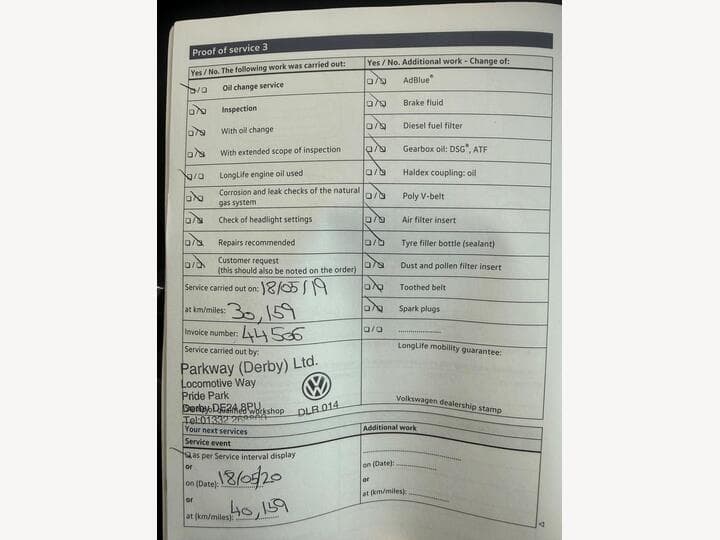 Proof of service 3
Yes / No. The following work was carried out:
Oil change service
Inspection
With oil change
With extended scope of inspection
LongLife engine oil used
Corrosion and leak checks of the natural
gas system
Check of headlight settings
Repairs recommended
Customer request
(this should also be noted on the order)
Service carried out on: 18/05/19
at km/miles: 30,159
Invoice number: 44506
Service carried out by:
Parkway (Derby) Ltd.
Locomotive Way
Pride Park
Derby DE24 8PU
workshop
DLR 014
Tel:01332
Yes / No. Additional work - Change of:
AdBlue®
Brake fluid
Diesel fuel filter
Gearbox oil: DSG®, ATF
Haldex coupling: oil
Poly V-belt
Air filter insert
Tyre filler bottle (sealant)
Dust and pollen filter insert
Toothed belt
Spark plugs
LongLife mobility guarantee:
Volkswagen dealership stamp
Your next services
Service event
as per Service interval display
or
on (Date): 18/05/20
or
at (km/miles): 40,159
Additional work
on (Date):
or
at (km/miles):